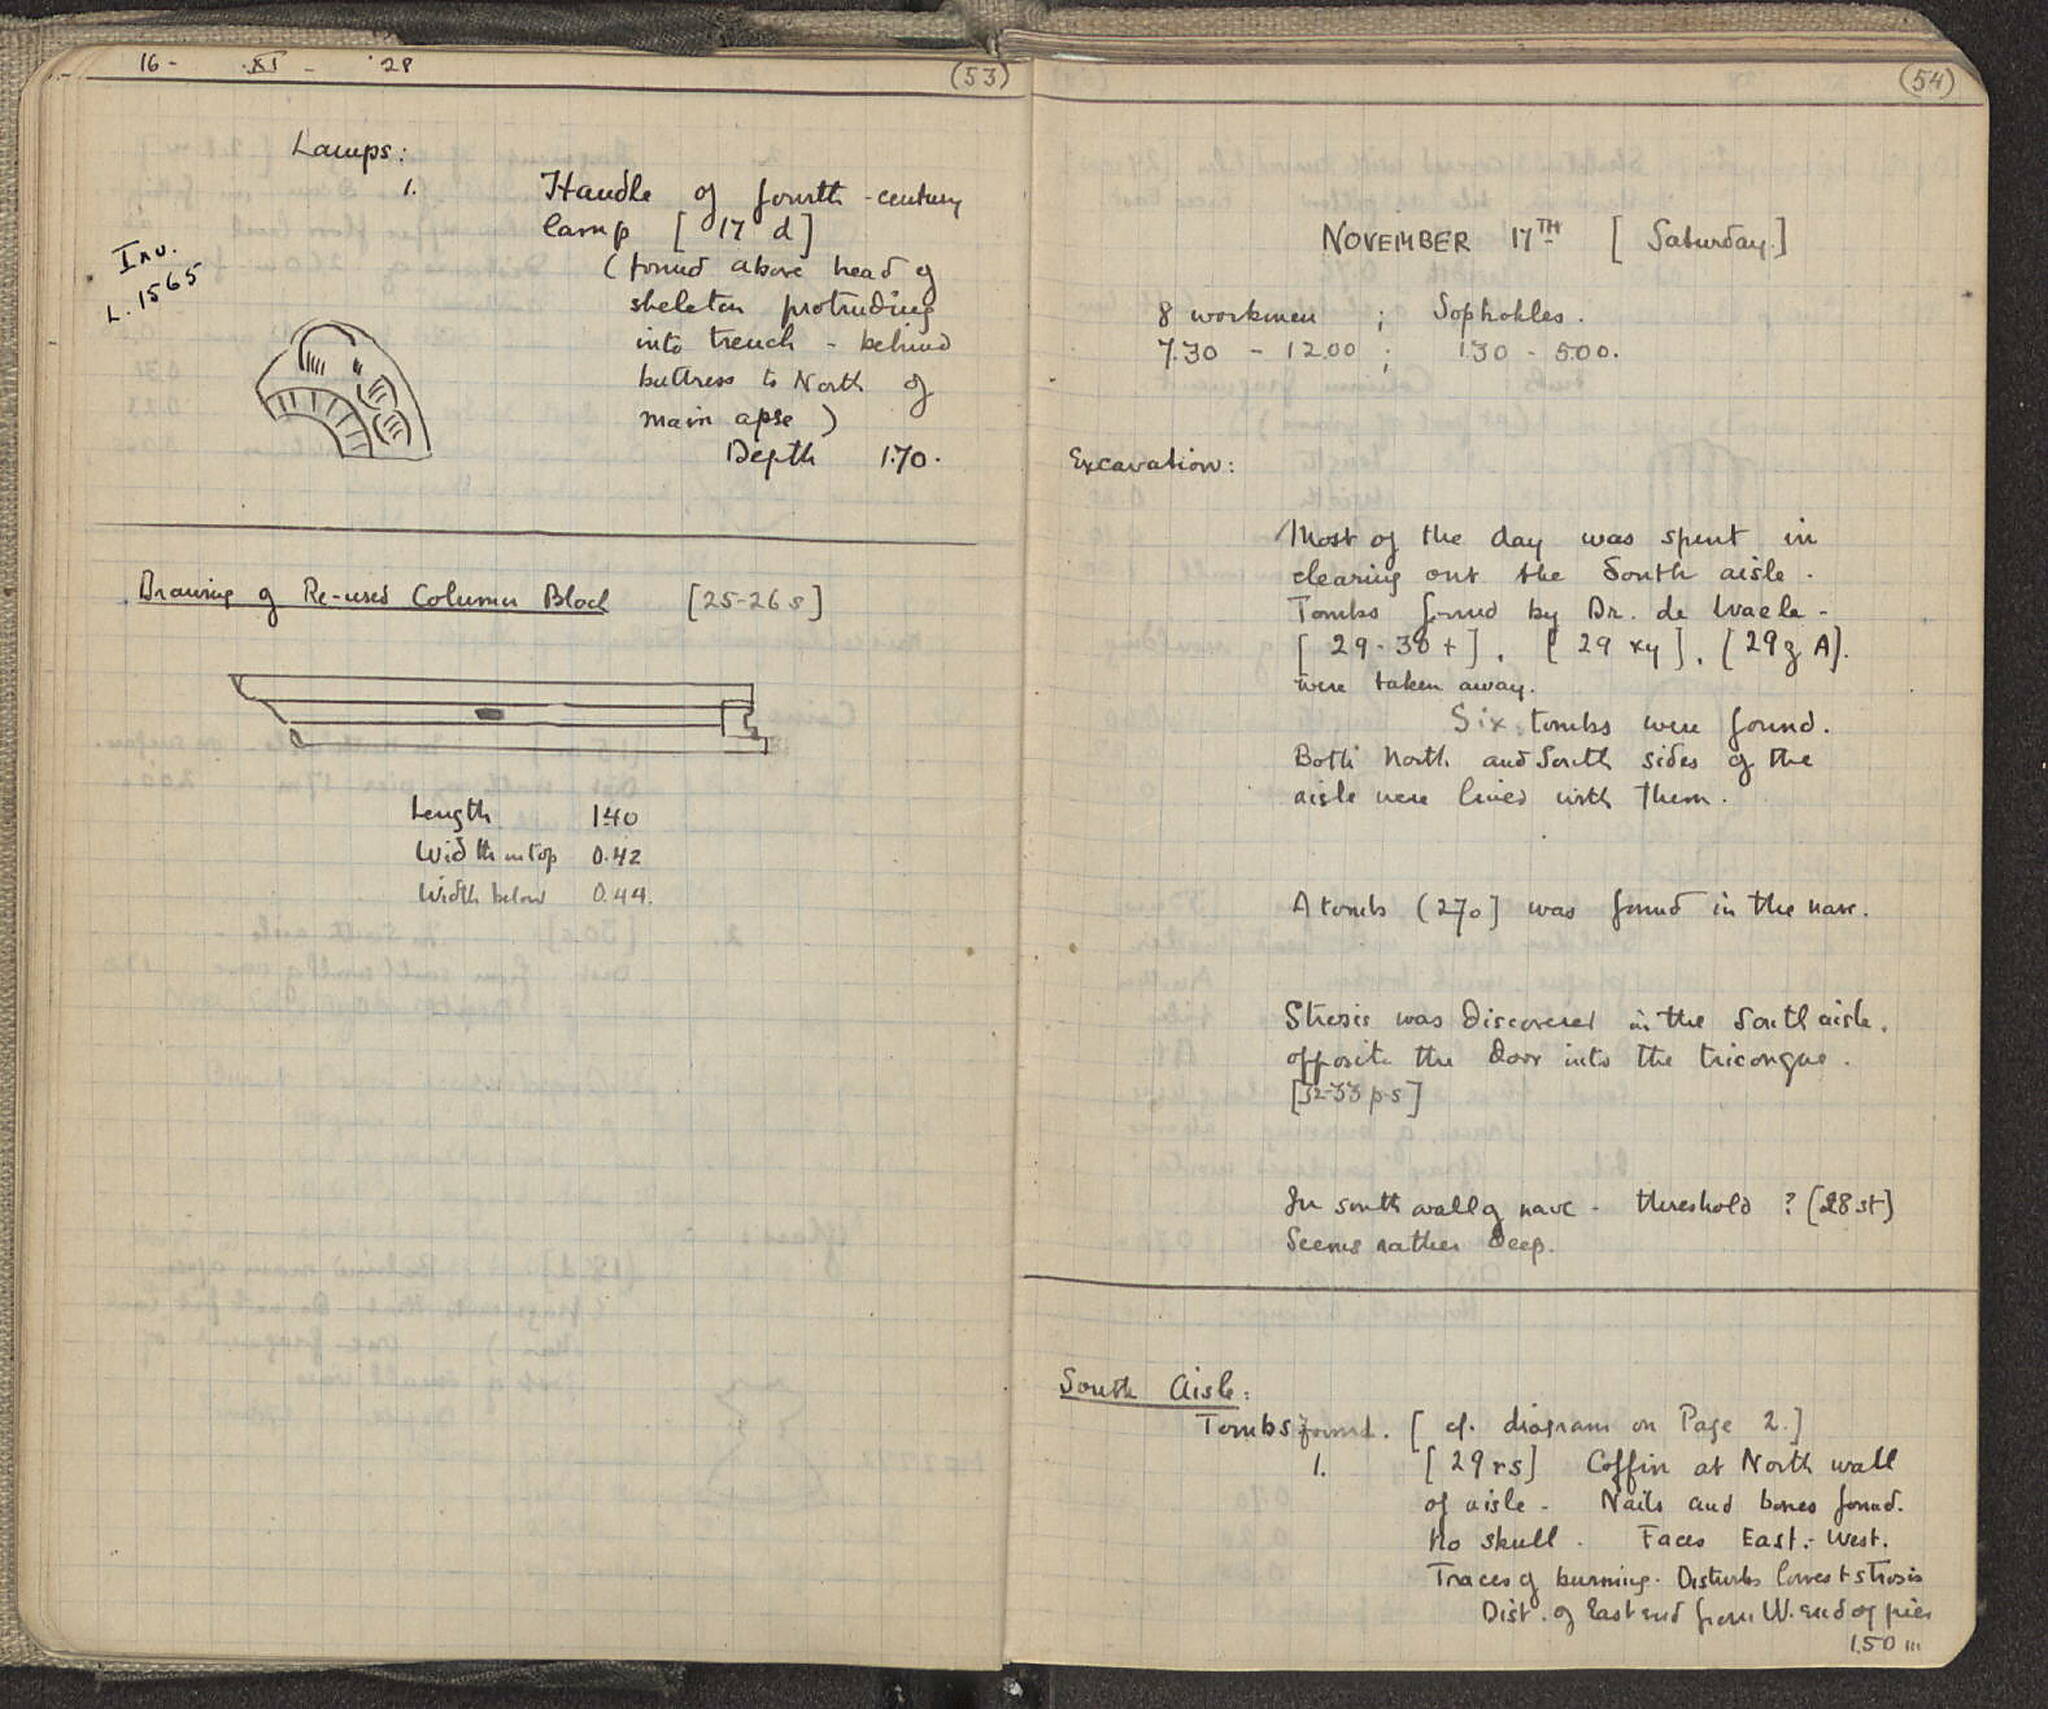 16 - XI - '28
(53)
Lamps:
1. Handle of fourth-century
lamp [17 d]
(found above head of
skeleton protruding
into trench - behind
buttress to North of
main apse)
Depth 1.70.
Inv.
L. 1565
Drawing of Re-used Column Block [25-26 s]
Length 1.40
Width on top 0.42
Width below 0.44.
(54)
NOVEMBER 17TH [Saturday.]
8 workmen ; Sophokles.
7.30 - 12.00 ; 1.30 - 5.00.
Excavation:
Most of the day was spent in
clearing out the South aisle.
Tombs found by Dr. de Waele -
[29-30 t], [29 xy], [29 z A].
were taken away.
Six tombs were found.
Both North and South sides of the
aisle were lined with them.
A tomb (27o] was found in the nave.
Strosis was discovered in the South aisle,
opposite the door into the tricongue.
[32-33 p-s]
In south wall of nave - threshold ? [28 st]
Seems rather deep.
South Aisle:
Tombs found. [cf. diagram on Page 2.]
1. [29 rs] Coffin at North wall
of aisle - Nails and bones found.
No skull. Faces East - West.
Traces of burning. Disturbs lowest strosis
Dist. of East end from W. end of pier
1.50 m